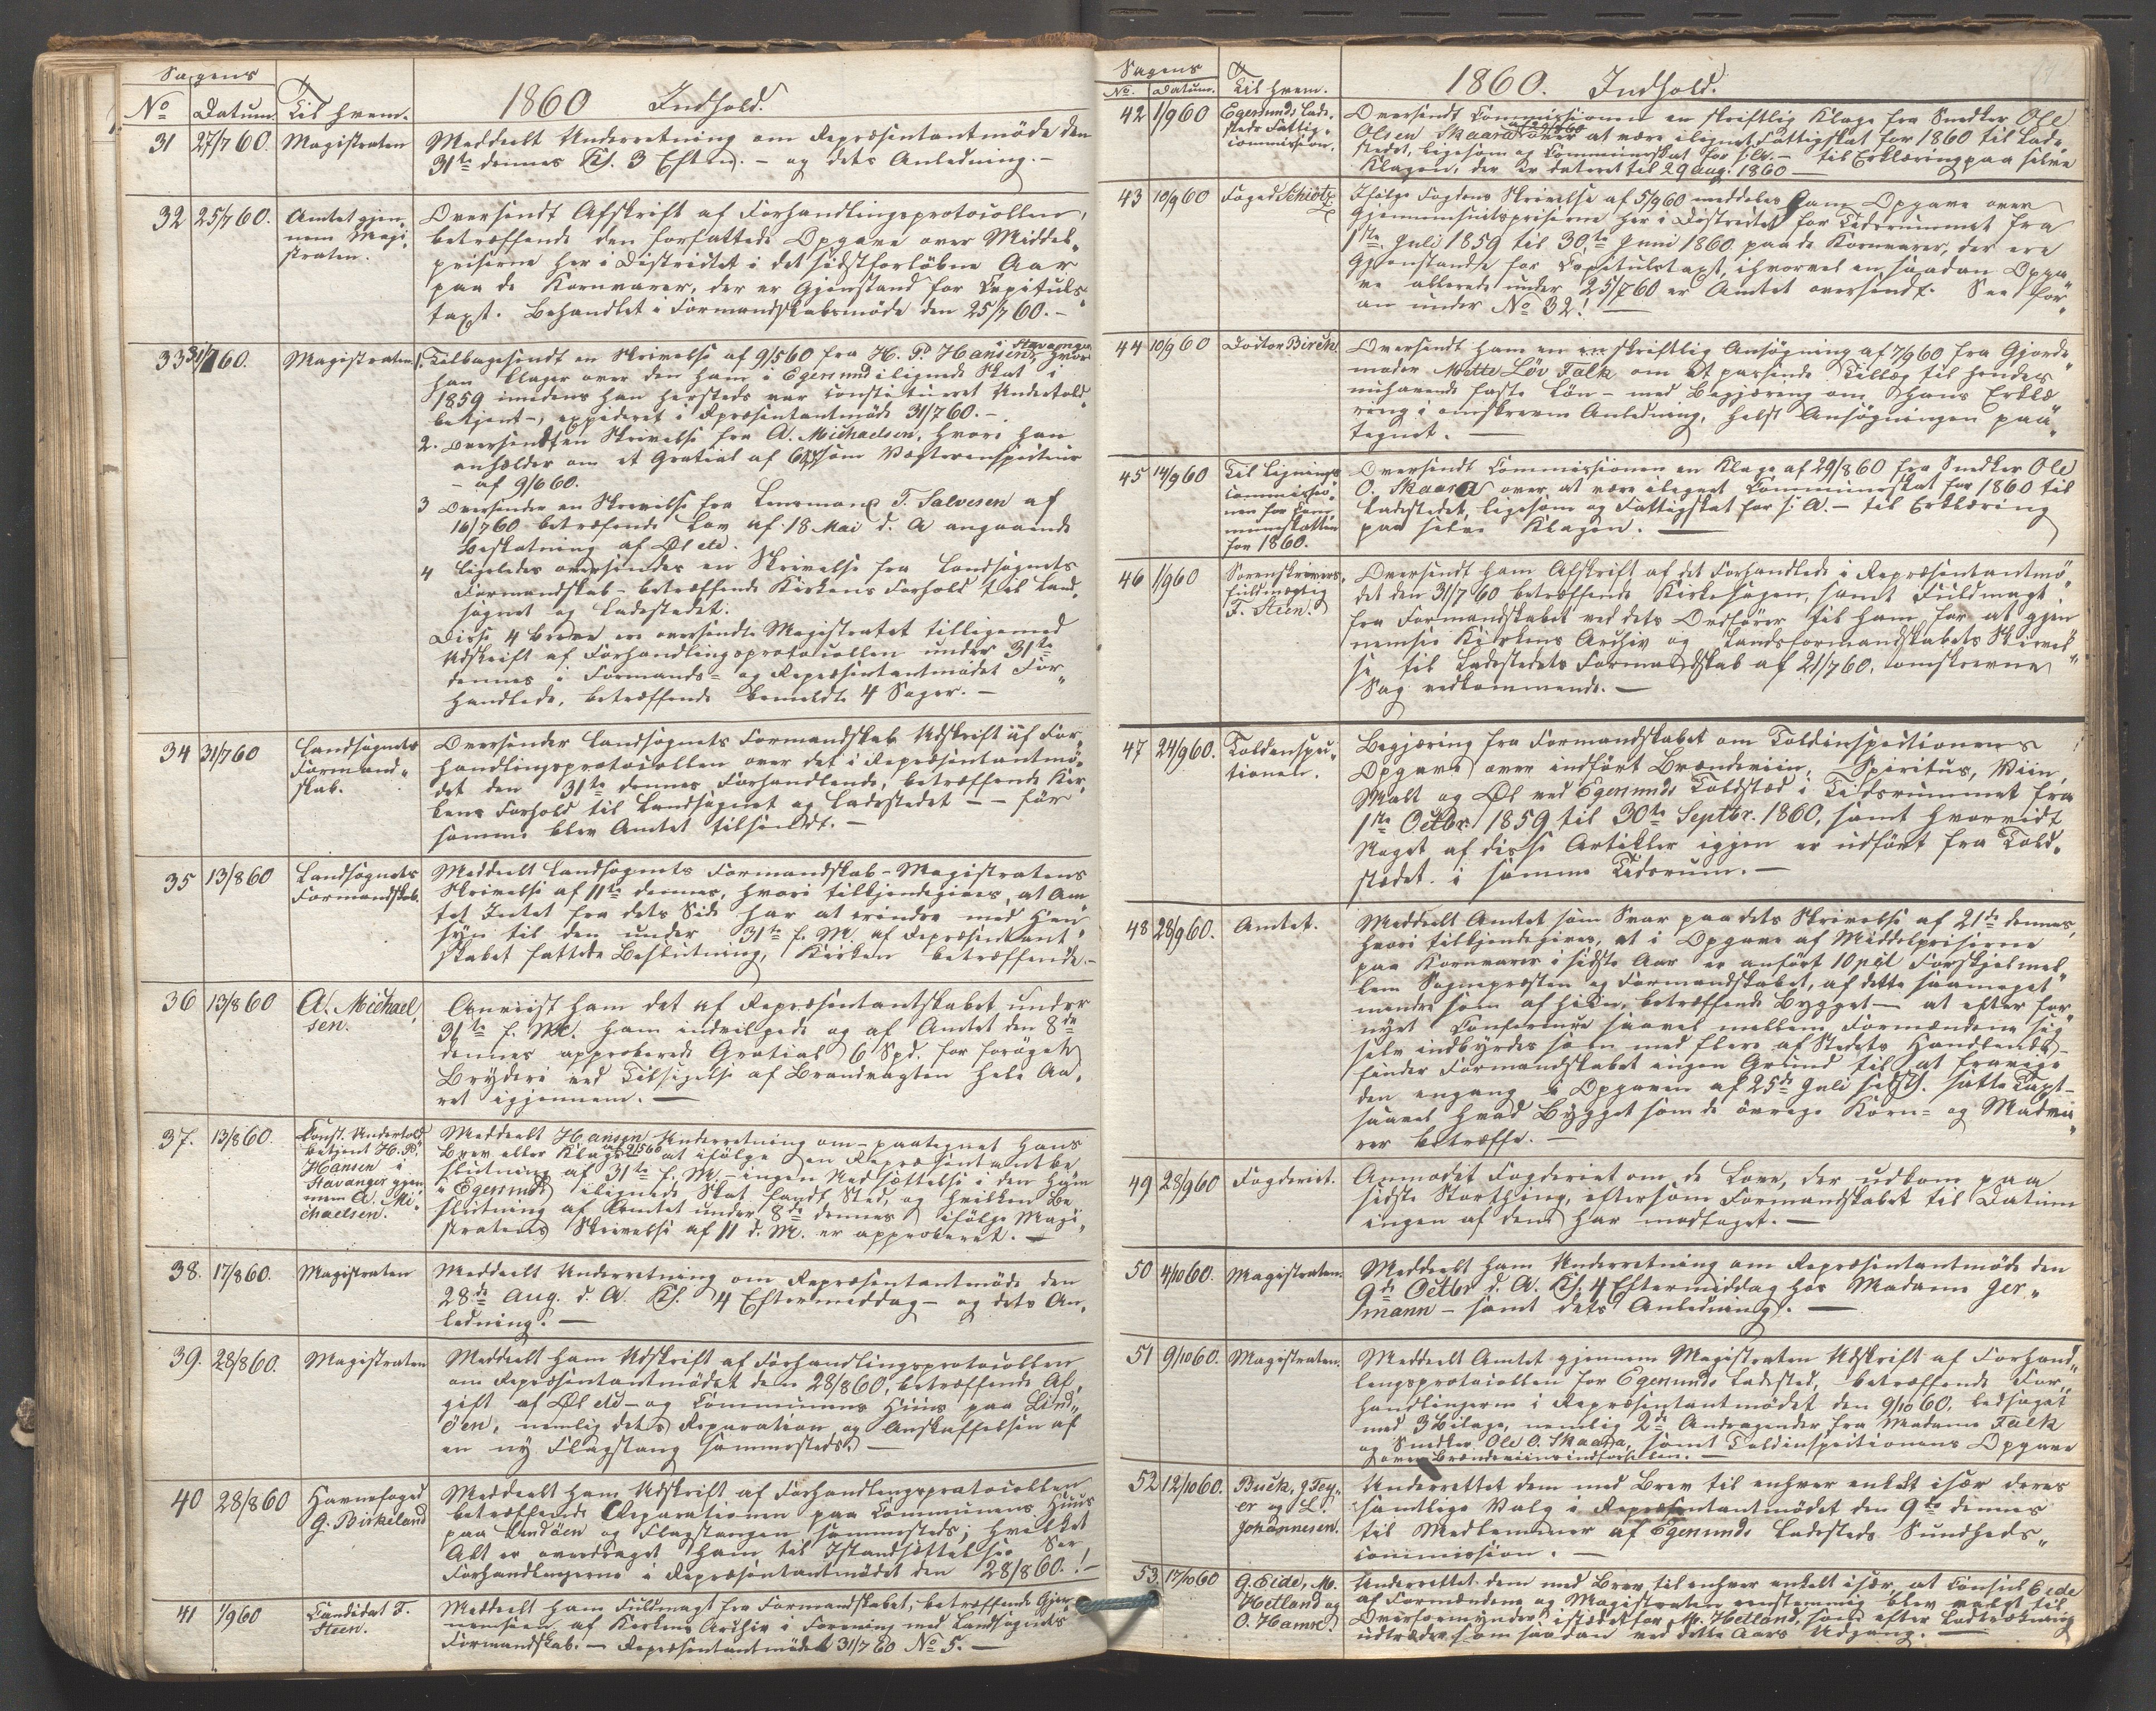 Sagens
No Datum. Til hvem. 1860 Indhold.
31 27/7 60. Magistraten Meddeelt Underretning om Repræsentantmøde den
31te dennes Kl. 3 Efterm. – og dets Anledning. –
32 25/7 60. Amtet gjen„
nem Magi„
straten.
Oversendt Afskrift af Forhandlingsprotocollen,
betræffende den forfattede Opgave over Middel„
priserne her i Districtet i det sidstforløbne Aar
paa de Kornvarer, der er Gjenstand for Capitels„
taxt. Behandlet i Formandskabsmøde den 25/7 60. –
33 31/7 60. Magistraten 1. Tilbagesendt en Skrivelse af 9/5 60 fra H. P. Hansen i Stavanger, hvor
han klager over den ham i Egersund ilignede Skat i
1859 imedens han hersteds var constitueret Undertold„
betjent –, expederet i Repræsentantmøde 31/7 60. –
2. Oversendt en Skrivelse fra A. Michaelsen, hvori han
anholder om et Gratial af 6 Spd som
– af 9/6 60.
3 Oversender en Skrivelse fra Lensmand T. Salvesen af
16/7 60 betræffende Lov af 18 Mai d. A. angaaende
Beskatning af Øl etc.
4 Ligeledes oversendes en Skrivelse fra Landsognets
Formandskab – betræffende Kirkens Forhold til Land„
sognet og Ladestedet.
Disse 4 Breve ere oversendte Magistratet tilligemed
Udskrift af Forhandlingsprotocollen under 31te
dennes i Formands- og Repræsentantmødet For„
handlede, betræffende bemeldte 4 Sager. –
34 31/7 60 Landsognets
Formand„
skab.
Oversender Landsognets Formandskab Udskrift af For„
handlingsprotocollen over det i Repræsentantmø„
det den 31te dennes Forhandlende, betræffende Kir„
kens Forhold til Landsognet og Ladestedet – – før
samme blev Amtet tilsendt. –
35 13/8 60 Landsognets
Formandskab.
Meddeelt Landsognets Formandskab – Magistratens
Skrivelse af 11te dennes, hvori tilkjendegives, at Am„
tet Intet fra dets Side har at erindre med Hen„
syn til den under 31te f. M. af Repræsentant„
skabet fattede Beslutning, Kirken betræffende. –
36 13/8 60 A. Michael„
sen.
Anviist ham det af Repræsentantskabet under
31te f. M. ham indvilgede og af Amtet den 8de
dennes approberede Gratial 6 Spd. for forøget
Bryderi ved Tilsigelse af Brandvagten hele Aa„
ret igjennem. –
37. 13/8 60. Const. Undertold
betjent H. P.
Hansen i
Stavanger gjen
nem A. Mi„
chaelsen.
Meddeelt Hansen Underretning om – paategnet hans
Brev eller Klage af 9/5 60 – at ifølge en Repræsentantbe„
slutning af 31te f. M. – ingen Nedsættelse i den ham
i Egersund ilignede Skat fandt Sted, og hvilken Be„
slutning af Amtet under 8de dennes ifølge Magi„
stratens Skrivelse af 11 d. M. er approberet. –
38. 17/8 60. Magistraten Meddeelt Underretning om Repræsentantmøde den
28de Aug. d. A. Kl. 4 Eftermiddag – og dets An„
ledning. –
39. 28/8 60. Magistraten Meddeelt ham Udskrift af Forhandlingsprotocollen
om Repræsentantmødet den 28/8 60, betræffende Af„
gift af Øl etc – og Communens Huus paa Lind„
öen, nemlig dets Reparation og Anskaffelsen af
en ny Flagstang sammesteds. –
40 28/8 60 Havnefoged
G. Birkeland
Meddeelt ham Udskrift af Forhandlingsprotocollen
betræffende Reparationen paa Communens Huus
paa Lindöen og Flagstangen sammesteds; hvilket
Alt er overdraget ham til Istandsættelse. See
Forhandlingerne i Repræsentantmødet den 28/8 60.! –
41 1/9 60 Candidat F.
Steen.
Meddeelt ham Fuldmagt fra Formandskabet, betræffende Gjen„
nemseen af Kirkens Archiv i Forening med Landsognets
Formandskab. – Repræsentantmøde 31/7 60 No 5. –
Sagens
No. Datum. Til hvem. 1860. Indhold.
42 1/9 60 Egersunds Lade„
steds Fattig„
commission.
Oversendt Commissionen en skriftlig Klage fra Snedker Ole
Olsen Skaara over at være ilignet Fattigskat for 1860 til Lade„
stedet, ligesom og Communeskat for s. A. – til Erklæring paa selve
Klagen, der er dateret til 29 Aug. 1860 –
43 10/9 60 Foged Schiøtz Ifølge Fogdens Skrivelse af 5/9 60 meddeles ham Opgave over
Gjennemsnitspriserne her i Districtet for Tidsrummet fra
1ste Juli 1859 til 30te Juni 1860 paa de Kornvarer, der ere
Gjenstande for Capitelstaxt, ihvorvel en saadan Opga„
ve allerede under 25/7 60 er Amtet oversendt. See for„
an under No 32! –
44 10/9 60 Doctor Birch. Oversendt ham en skriftlig Ansøgning af 7/9 60 fra Gjorde„
moder Mette Löv Falk om et passende Tillæg til hendes
nuhavende faste Løn – med Begjæring om Hans Erklæ„
ring i omskrevne Anledning, helst Ansøgningen paa„
tegnet. –
45 14/9 60 Til Lignings
Commissio„
nen for Com„
muneskatten
for 1860.
Oversendt Commissionen en Klage af 29/8 60 fra Snedker Ole
O. Skaara over at være ilignet Communeskat for 1860 til
Ladestedet, ligesom og Fattigskat for s. A. – til Erklæring
paa selve Klagen. –
46 1/9 60 Sorenskrivers
fuldmægtig
F. Steen.
Oversendt ham Afskrift af det Forhandlede i Repræsentantmø„
det den 31/7 60 betræffende Kirkesagen, samt Fuldmagt
fra Formandskabet ved dets Ordfører til ham for at gjen
nemsee Kirkens Archiv og Landsformandskabets Skrivel„
se til Ladestedets Formandskab af 21/7 60, omskrevne
Sag vedkommende. –
47 24/9 60. Toldinspec„
tionen.
Begjæring fra Formandskabet om Toldinspectionens
Opgave over indført Brændeviin, Spiritus, Viin,
Malt og Øl ved Egersunds Toldsted i Tidsrummet fra
1ste Octbr. 1859 til 30te Septbr. 1860, samt hvorvidt
Noget af disse Artikler igjen er udført fra Told„
stedet i samme Tidsrum. –
48 28/9 60. Amtet. Meddeelt Amtet som Svar paa dets Skrivelse af 21de dennes,
hvori tilkjendegives, at i Opgave af Middelpriserne
paa Kornvarer i sidste Aar er anført 10 pCt Forskjel mel„
lem Sognepræsten og Formandskabet, af dette saameget
mindre som af hiin, betræffende Bygget – at efter for„
nyet Conference saavel mellem Formændene sig
selv indbyrdes som med flere af Stedets Handlende –
finder Formandskabet ingen Grund til at fravige
den engang i Opgaven af 25de Juli sidstl. satte Taxt –
saavel hvad Bygget som de øvrige Korn- og Madva„
rer betræffe. –
49 28/9 60 Fogderiet. Anmodet Fogderiet om de Love, der udkom paa
sidste Storthing, eftersom Formandskabet til Datum
ingen af dem har modtaget. –
50 4/10 60. Magistraten. Meddeelt ham Underretning om Repræsentantmøde den
9de Octbr d. A. Kl. 4 Eftermiddag hos Madame Jer„
mann – samt dets Anledning. –
51 9/10 60. Magistraten. Meddeelt Amtet gjennem Magistraten Udskrift af Forhand„
lingsprotocollen for Egersunds Ladested, betræffende For„
handlingerne i Repræsentantmødet den 9/10 60, ledsaget
med 3 Bilage, nemlig 2de Andragender fra Madame Falk
og Snedker Ole O. Skaara, samt Toldinspectionens Opgave
over Brændeviinsindførselen. –
52 12/10 60. Buck, J Fey„
er og L.
Johannesen.
Underrettet dem med Brev til enhver enkelt især deres
samtlige Valg i Repræsentantmødet den 9de dennes
til Medlemmer af Egersunds Ladesteds Sundheds„
commission. –
53. 17/10 60 G. Eide, M.
Hetland og
O. Hamre.
Underrettet dem med Brev til enhver enkelt især, at Consul Eide
af Formændene og Magistraten eenstemmig blev valgt til
Overformynder istedetfor M. Hetland, som efter Lodtrækning
udtræder som saadan ved dette Aars Udgang. –